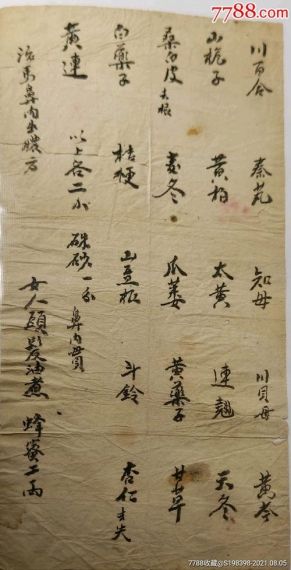 7788.com
川百合 秦艽 知母 川贝母 黄芩
山梔子 黄柏 太黄 連翘 天冬
桑白皮去根 麦冬 瓜蒌 黄藥子 甘草
白藥子 桔梗 山豆根 斗鈴 杏仁去尖
黄連 以上各二小 硃砂一分 鼻内
治馬鼻内出膿方 女人頭髮油煮 蜂蜜二两
7788收藏@S198398-2021.08.05